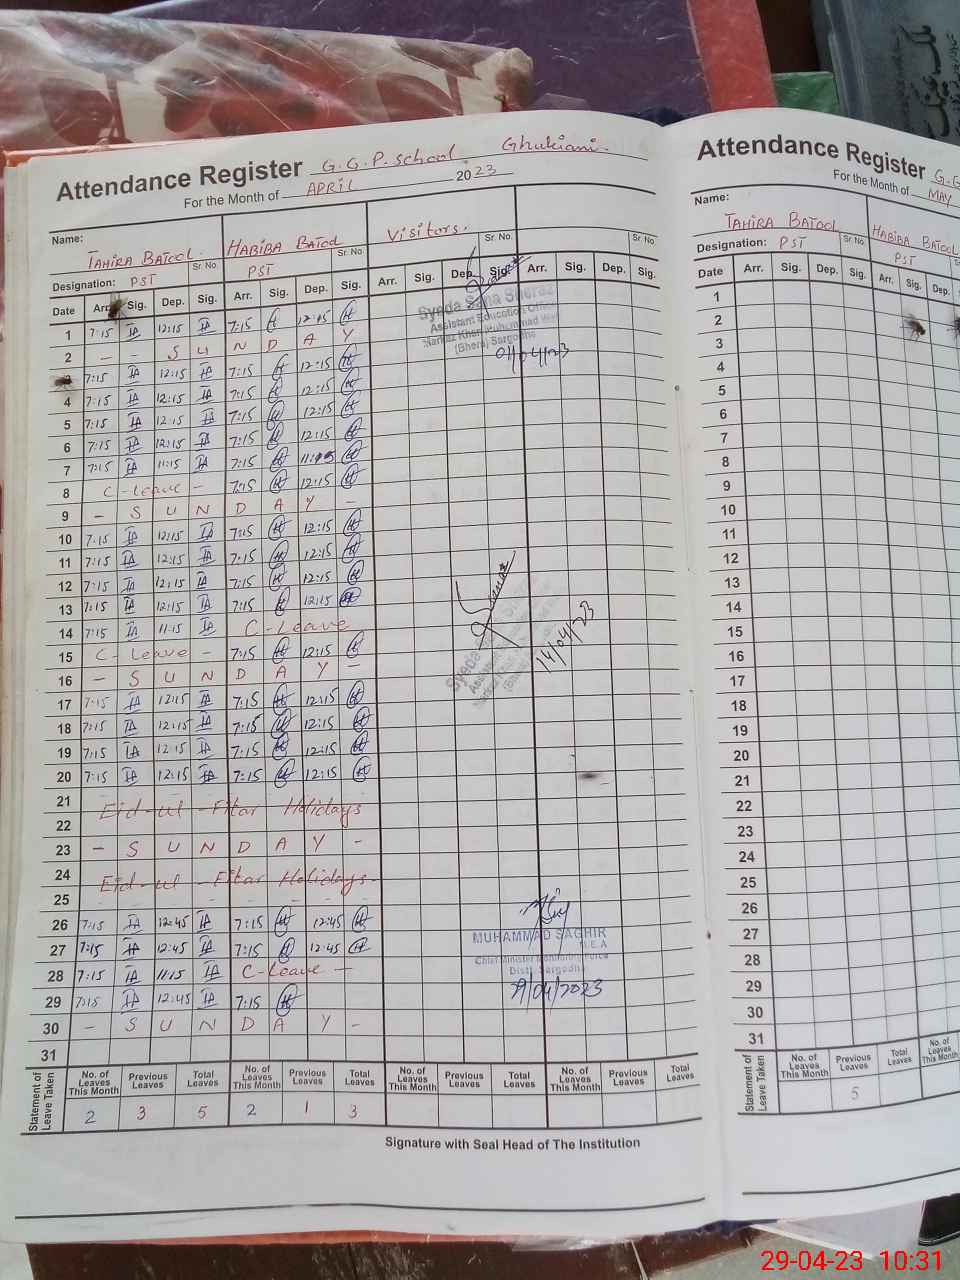 Attendance Register G.G.P. School Ghukiani.
For the Month of APRIL 2023
Name: TAHIRA BATOOL. Sr. No. HABIBA BATOOL Sr. No. Visitors. Sr. No. Sr. No.
Designation: PST PST
Date Arr. Sig. Dep. Sig. Arr. Sig. Dep. Sig. Arr. Sig. Dep. Sig. Arr. Sig. Dep. Sig.
1 7:15 IA 12:15 IA 7:15 H 12:45 H
2 - - S U N D A Y
7:15 IA 12:15 IA 7:15 H 12:15 H
4 7:15 IA 12:15 IA 7:15 H 12:15 H
5 7:15 IA 12:15 IA 7:15 H 12:15 H
6 7:15 IA 12:15 IA 7:15 H 12:15 H
7 7:15 IA 11:15 IA 7:15 H 11:15 H
8 C-leave - 7:15 H 12:15 H
9 - S U N D A Y -
10 7:15 IA 12:15 IA 7:15 H 12:15 H
11 7:15 IA 12:15 IA 7:15 H 12:15 H
12 7:15 IA 12:15 IA 7:15 H 12:15 H
13 7:15 IA 12:15 IA 7:15 H 12:15 H
14 7:15 IA 11:15 IA C-Leave
15 C-Leave - 7:15 H 12:15 H
16 - S U N D A Y -
17 7:15 IA 12:15 IA 7:15 H 12:15 H
18 7:15 IA 12:15 IA 7:15 H 12:15 H
19 7:15 IA 12:15 IA 7:15 H 12:15 H
20 7:15 IA 12:15 IA 7:15 H 12:15 H
21
Eid-ul-Fitar Holidays
22
23 - S U N D A Y -
24
Eid-ul-Fitar Holidays-
25
26 7:15 IA 12:45 IA 7:15 H 12:45 H
27 7:15 IA 12:45 IA 7:15 H 12:45 H
28 7:15 IA 11:15 IA C-Leave -
29 7:15 IA 12:45 IA 7:15 H
30 - S U N D A Y -
31
Syeda Sana Sheraz
Assistant Education Officer
Markaz Khan Muhammad Wali
(Bhera) Sargodha
01/04/23
Syeda
14/04/23
MUHAMMAD SAGHIR
M.E.A
Chief Minister Monitoring Force
Distt. Sargodha
29/04/2023
Statement of Leave Taken
No. of Leaves This Month Previous Leaves Total Leaves No. of Leaves This Month Previous Leaves Total Leaves No. of Leaves This Month Previous Leaves Total Leaves No. of Leaves This Month Previous Leaves Total Leaves
2 3 5 2 1 3
Signature with Seal Head of The Institution
Attendance Register G.G
For the Month of MAY
Name: TAHIRA BATOOL Sr. No. HABIBA BATOOL
Designation: PST PST
Date Arr. Sig. Dep. Sig. Arr. Sig. Dep.
1
2
3
4
5
6
7
8
9
10
11
12
13
14
15
16
17
18
19
20
21
22
23
24
25
26
27
28
29
30
31
Statement of Leave Taken
No. of Leaves This Month Previous Leaves Total Leaves No. of Leaves This Month
5
29-04-23 10:31